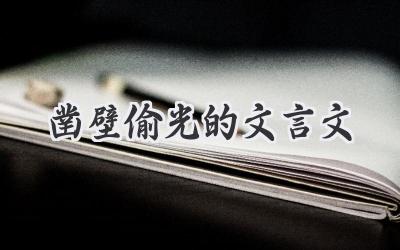 凿壁偷光的文言文